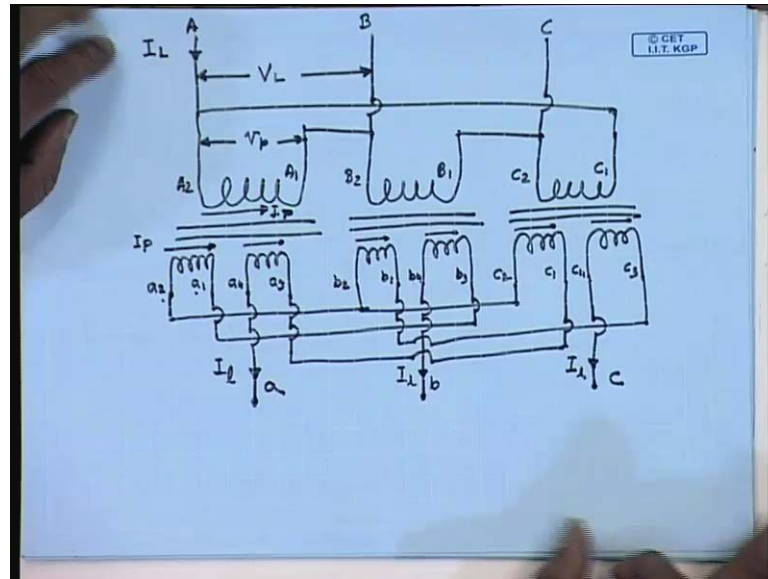 A B C
© CET
I.I.T. KGP
IL
VL
Vp
A2 A1 B2 B1 C2 C1
Ip
Ip
a2 a1 a4 a3 b2 b1 b4 b3 c2 c1 c4 c3
Il a Il b Il c